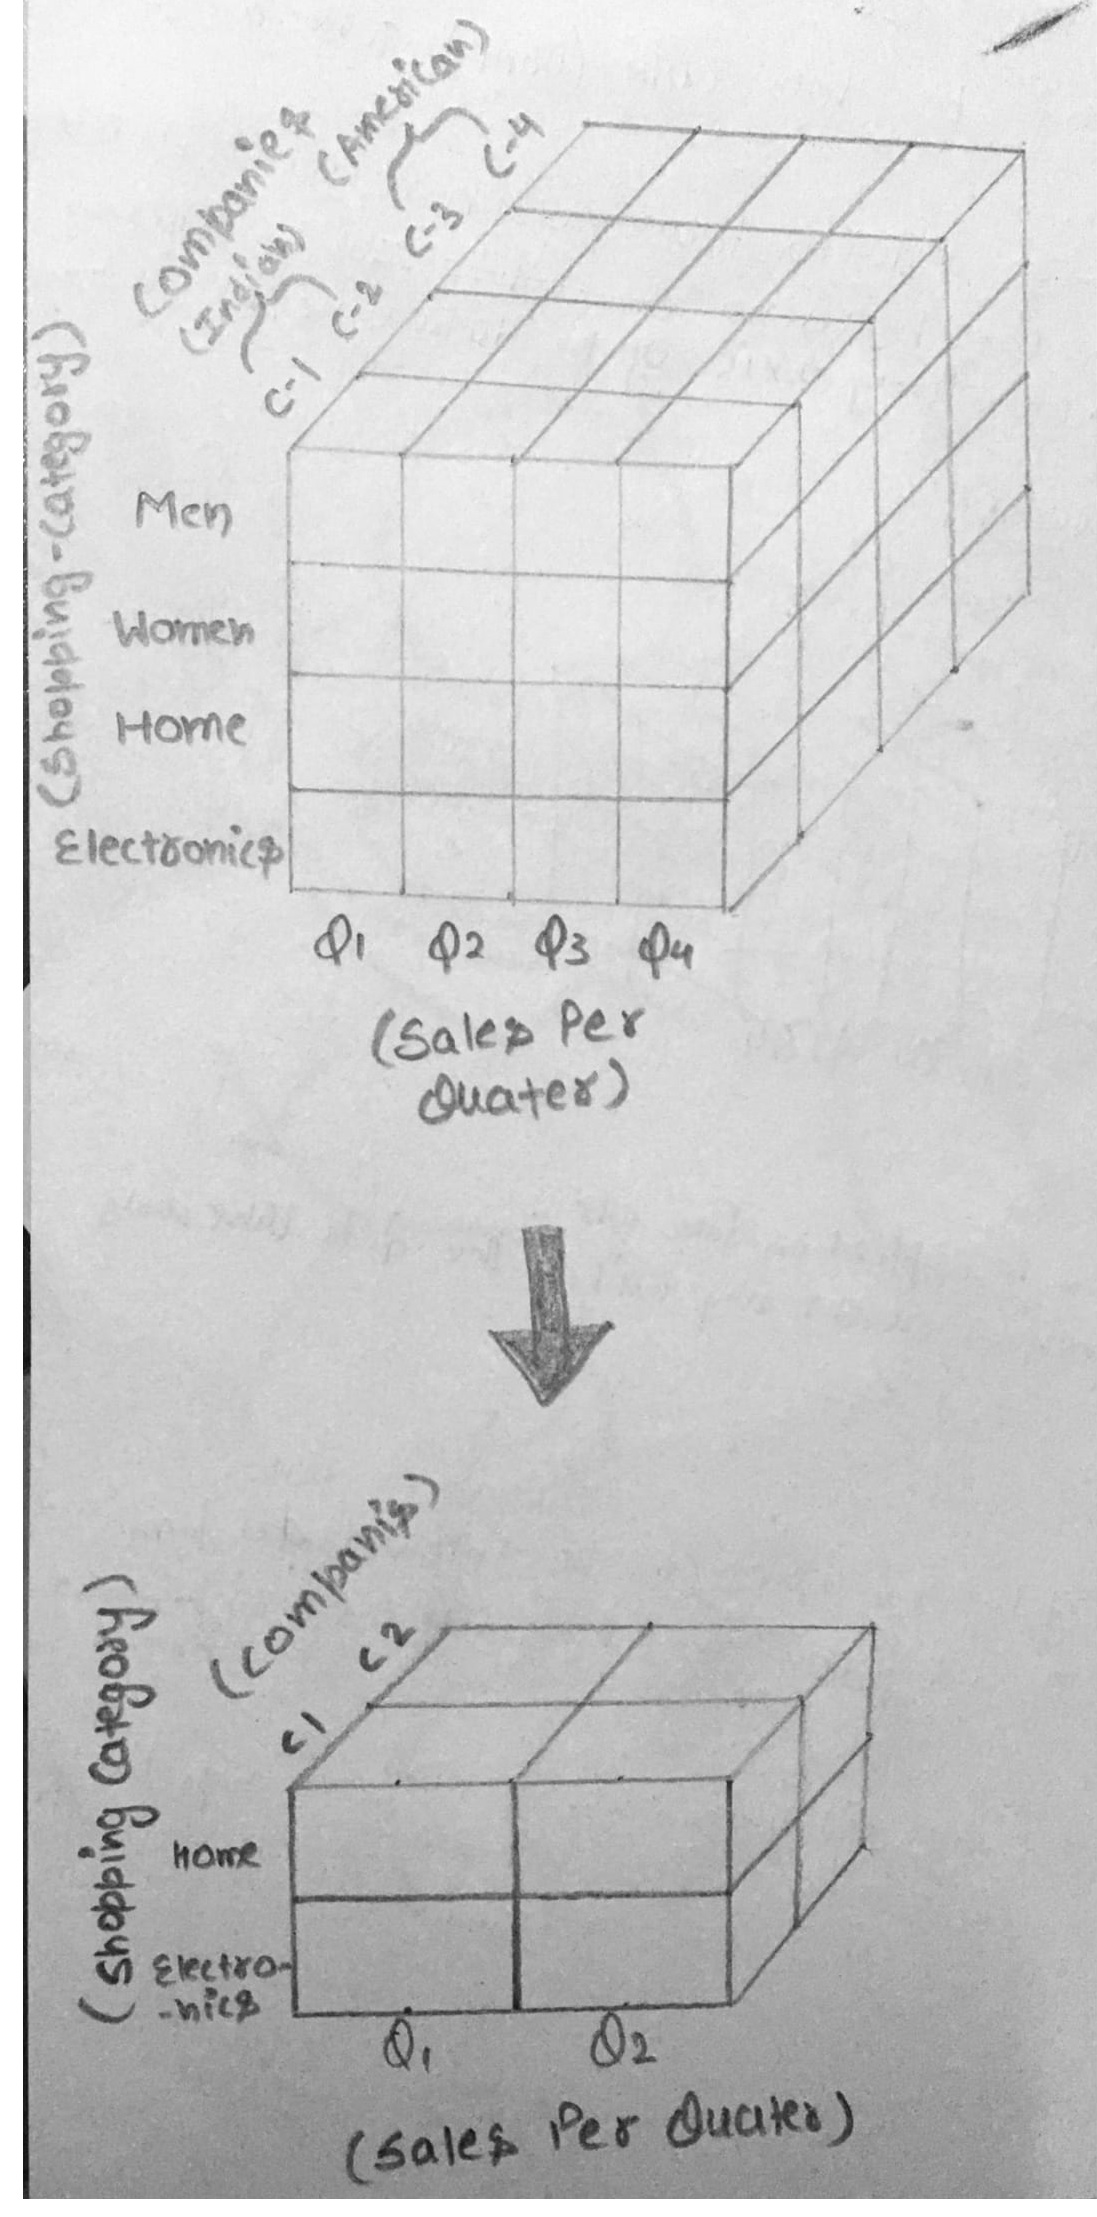 Companies
(American)
(Indian)
C-4
C-3
C-2
C-1
(Shopping-Category)
Men
Women
Home
Electronics
Q1 Q2 Q3 Q4
(Sales Per
Quater)
(Companis)
C2
C1
(Shopping Category)
Home
Electro-
-nics
Q1 Q2
(Sales Per Quater)